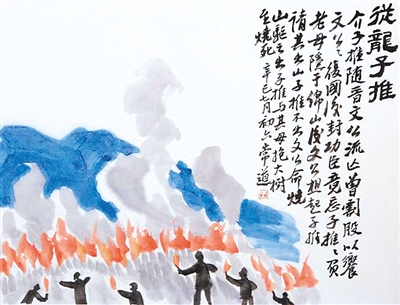 從龍子推
介子推随晋文公流亡曾割股以饗
文公々復國後封功臣竟忘子推々負
老母隱于綿山後文公想起子推
請其出山子推不出文公命燒
山驅之出子推与其母抱大樹
至燒死 辛巳七月初六 崇道